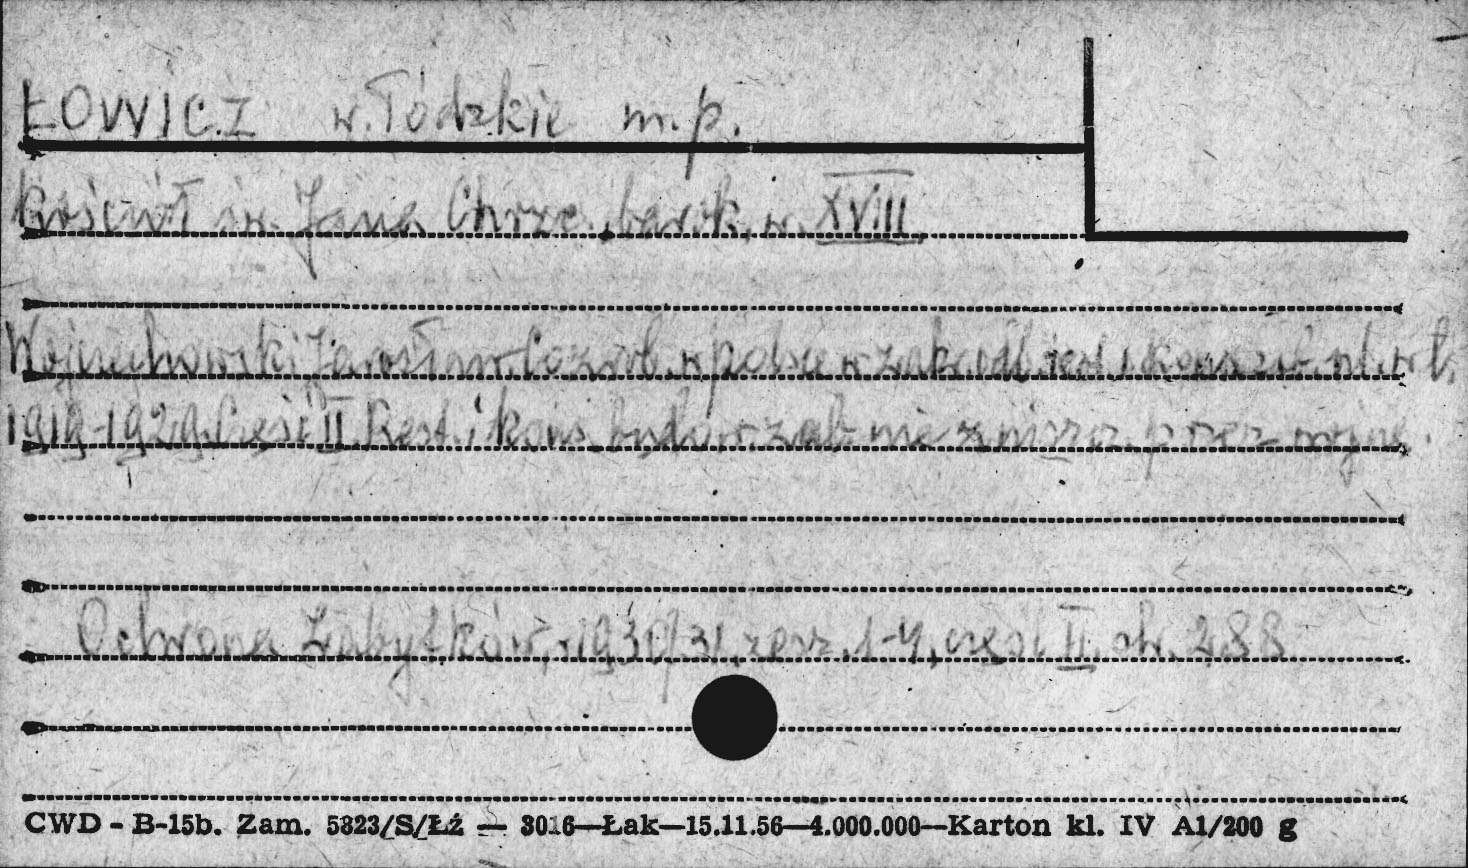 ŁOWICZ w. Łódzkie m. p.
Kościół św. Jana Chrzc. barok, w. XVIII.
Wojciechowski Jarosław. Co zrob. w pol w zakr. odb. jest i konserw.
1919-1929. Część II. Rest. i kons. budow. zab. nie zniszcz. przez wojnę.
Ochrona Zabytków, r. 1930/31, zesz. 1-4, część II. str. 288
CWD - B-15b. Zam. 5823/S/Łż — 3016—Łak—15.11.56—4.000.000—Karton kl. IV A1/200 g